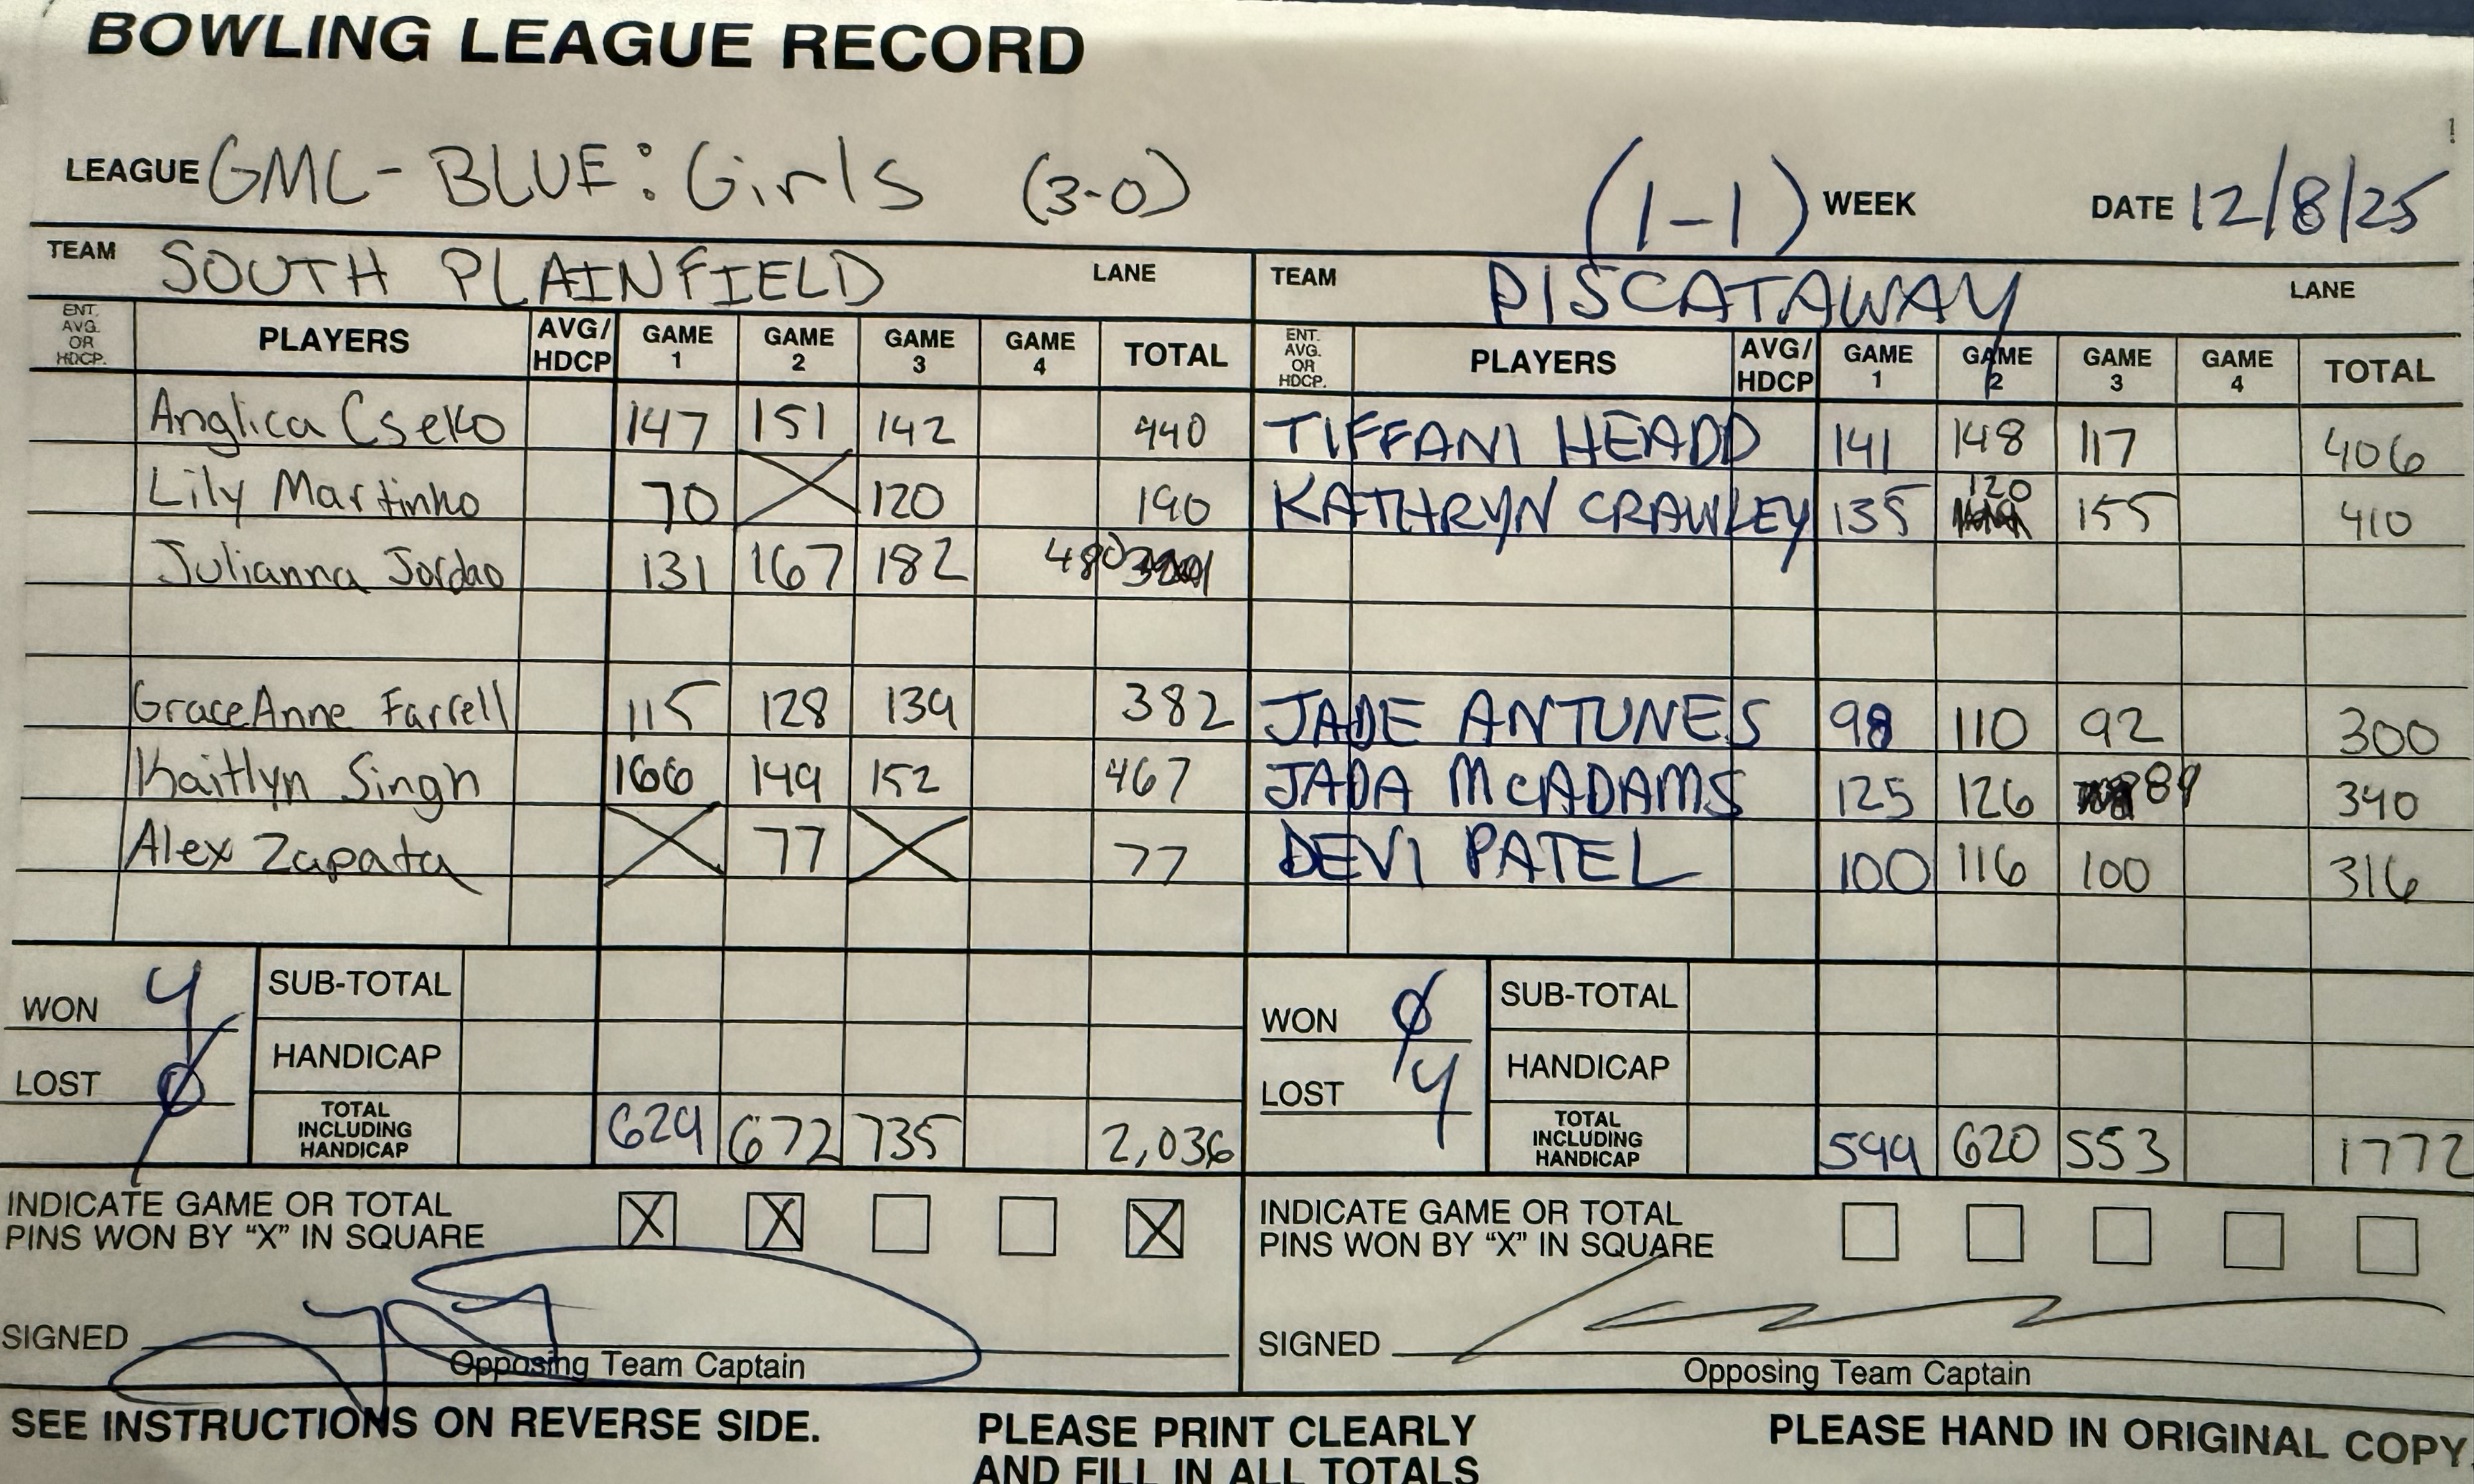 BOWLING LEAGUE RECORD
LEAGUE GMC-BLUE: Girls (3-0) (1-1) WEEK DATE 12/8/25
TEAM SOUTH PLAINFIELD LANE TEAM PISCATAWAY LANE
ENT. AVG. OR HDCP. PLAYERS AVG/HDCP GAME 1 GAME 2 GAME 3 GAME 4 TOTAL ENT. AVG. OR HDCP. PLAYERS AVG/HDCP GAME 1 GAME 2 GAME 3 GAME 4 TOTAL
Anglica Cseko 147 151 142 440 TIFFANI HEADD 141 148 117 406
Lily Martinho 70 X 120 190 KATHRYN CRAWLEY 135 120 155 410
Julianna Jordao 131 167 182 480
GraceAnne Farrell 115 128 139 382 JADE ANTUNES 98 110 92 300
Kaitlyn Singh 166 149 152 467 JADA McADAMS 125 126 89 340
Alex Zapata X 77 X 77 DEVI PATEL 100 116 100 316
WON 4 SUB-TOTAL WON 0 SUB-TOTAL
LOST 0 HANDICAP LOST 4 HANDICAP
TOTAL INCLUDING HANDICAP 629 672 735 2,036 TOTAL INCLUDING HANDICAP 599 620 553 1772
INDICATE GAME OR TOTAL PINS WON BY “X” IN SQUARE X X X INDICATE GAME OR TOTAL PINS WON BY “X” IN SQUARE
SIGNED SIGNED
Opposing Team Captain Opposing Team Captain
SEE INSTRUCTIONS ON REVERSE SIDE. PLEASE PRINT CLEARLY AND FILL IN ALL TOTALS PLEASE HAND IN ORIGINAL COPY.